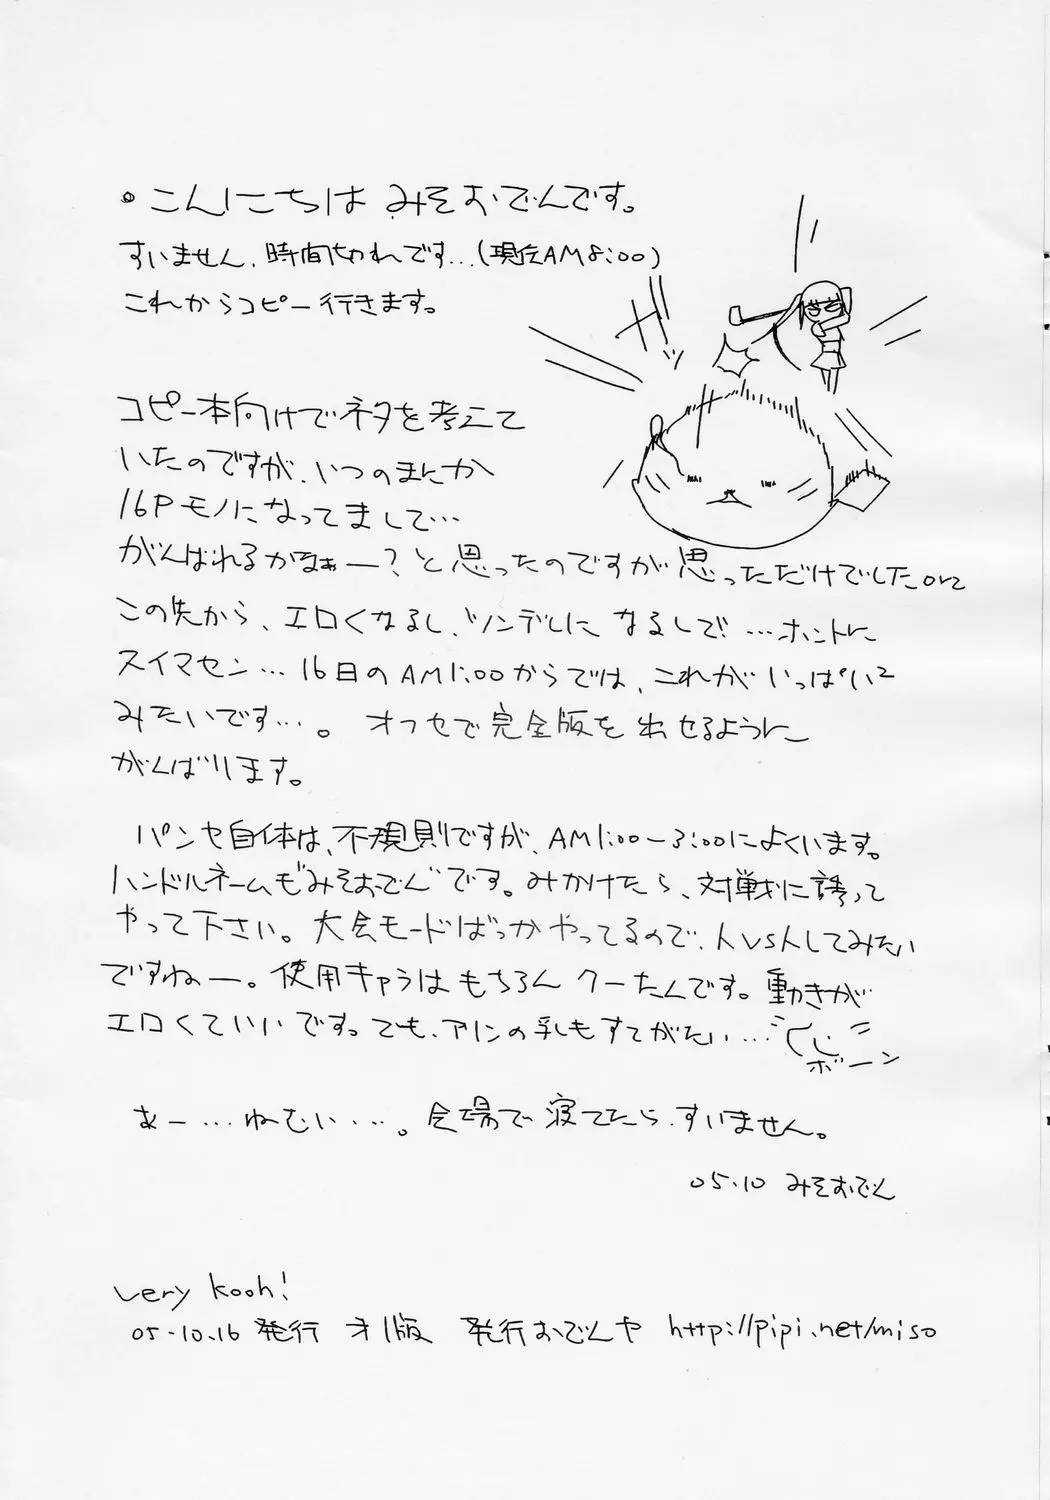 こんにちは みそおでんです。
すいません、時間切れです…(現在AM8:00)
これからコピー行きます。
コピー本向けでネタを考えて
いたのですが、いつのまにか
16Pモノになってまして…
がんばれるかなぁー?と思ったのですが思っただけでしたorz
この先から、エロくなるし、ツンデレになるしで!…ホントに
スイマセン…16日のAM1:00からでは、これがいっぱい2
みたいです…。オフセで完全版を出せるように
がんばります。
パンヤ自体は、不規則ですが、AM1:00-3:00によくいます。
ハンドルネームも"みそおでん"です。みかけたら、対戦に誘って
やって下さい。大会モードばっかやってるので、人vs人してみたい
ですねー。使用キャラはもちろんクーたんです。動きが
エロくていいです。でも、アリンの乳もすてがたい…
ボーン
あー…ねむい…。会場で寝てたら、すいません。
05.10 みそおでん
very kooh!
05.10.16 発行 オ1版 発行おでんや http://pipi.net/miso